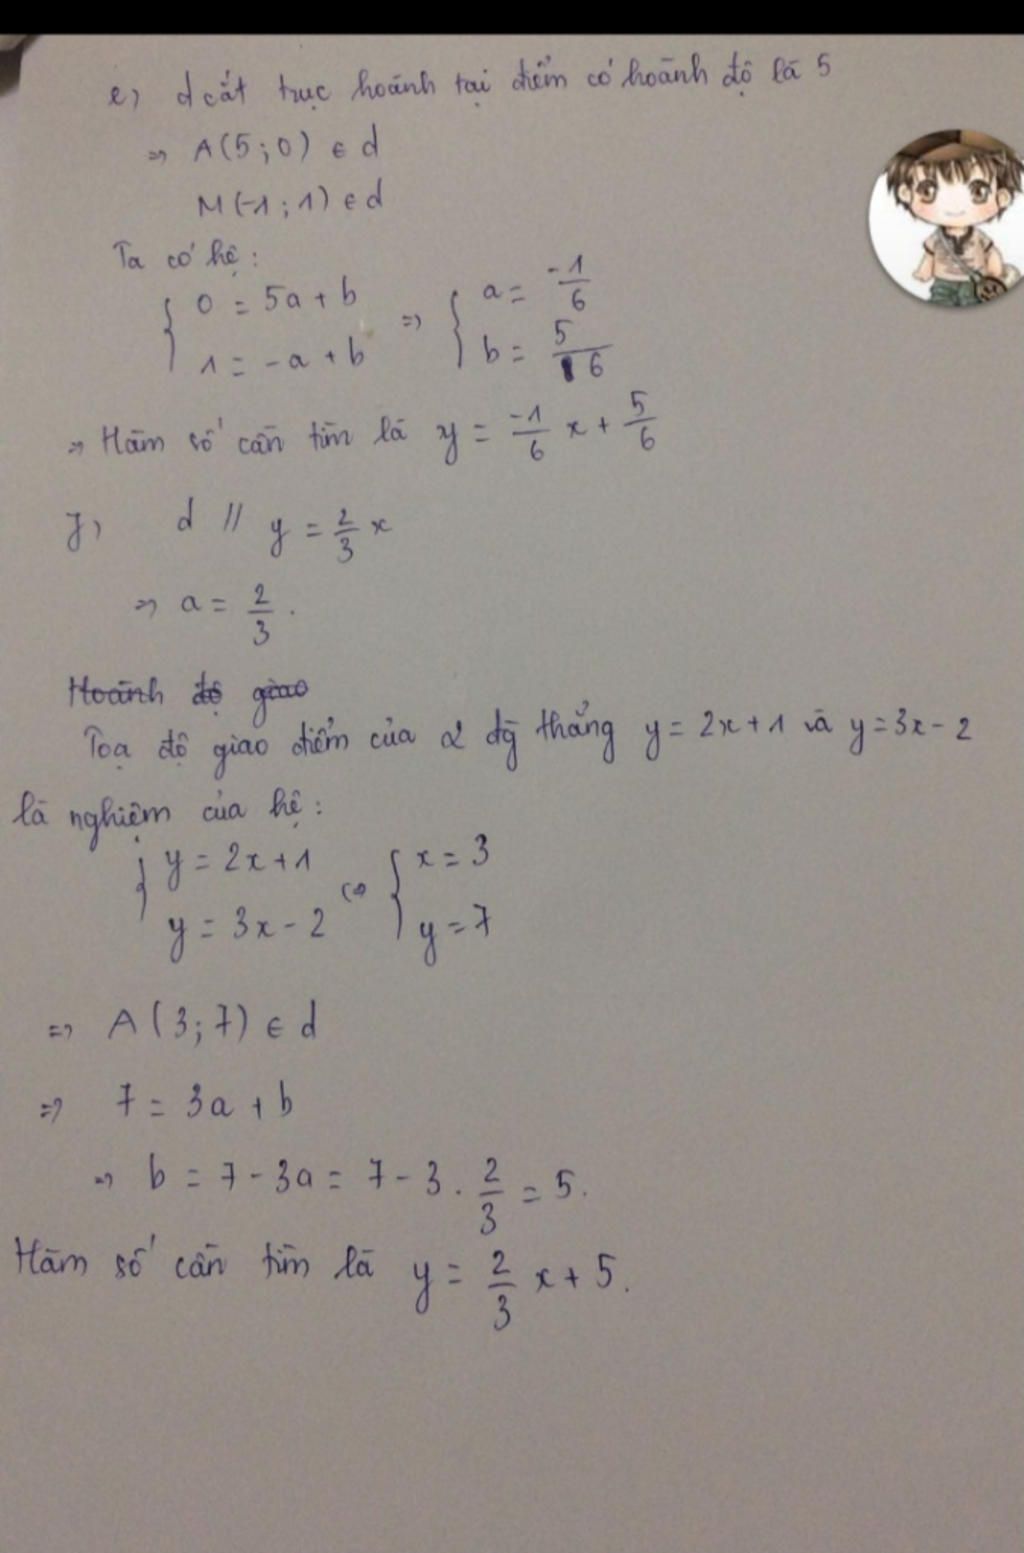 e) d cắt trục hoành tại điểm có hoành độ là 5
=> A(5;0) ∈ d
M(-1;1) ∈ d
Ta có hệ:
{ 0 = 5a + b => { a = -1/6
{ 1 = -a + b { b = 5/6
=> Hàm số cần tìm là y = -1/6 x + 5/6
f) d // y = 2/3 x
=> a = 2/3.
Hoành độ giao
Toạ độ giao điểm của 2 đg thẳng y = 2x + 1 và y = 3x - 2
là nghiệm của hệ:
{ y = 2x + 1 <=> { x = 3
{ y = 3x - 2 { y = 7
=> A(3;7) ∈ d
=> 7 = 3a + b
=> b = 7 - 3a = 7 - 3 . 2/3 = 5.
Hàm số cần tìm là y = 2/3 x + 5.